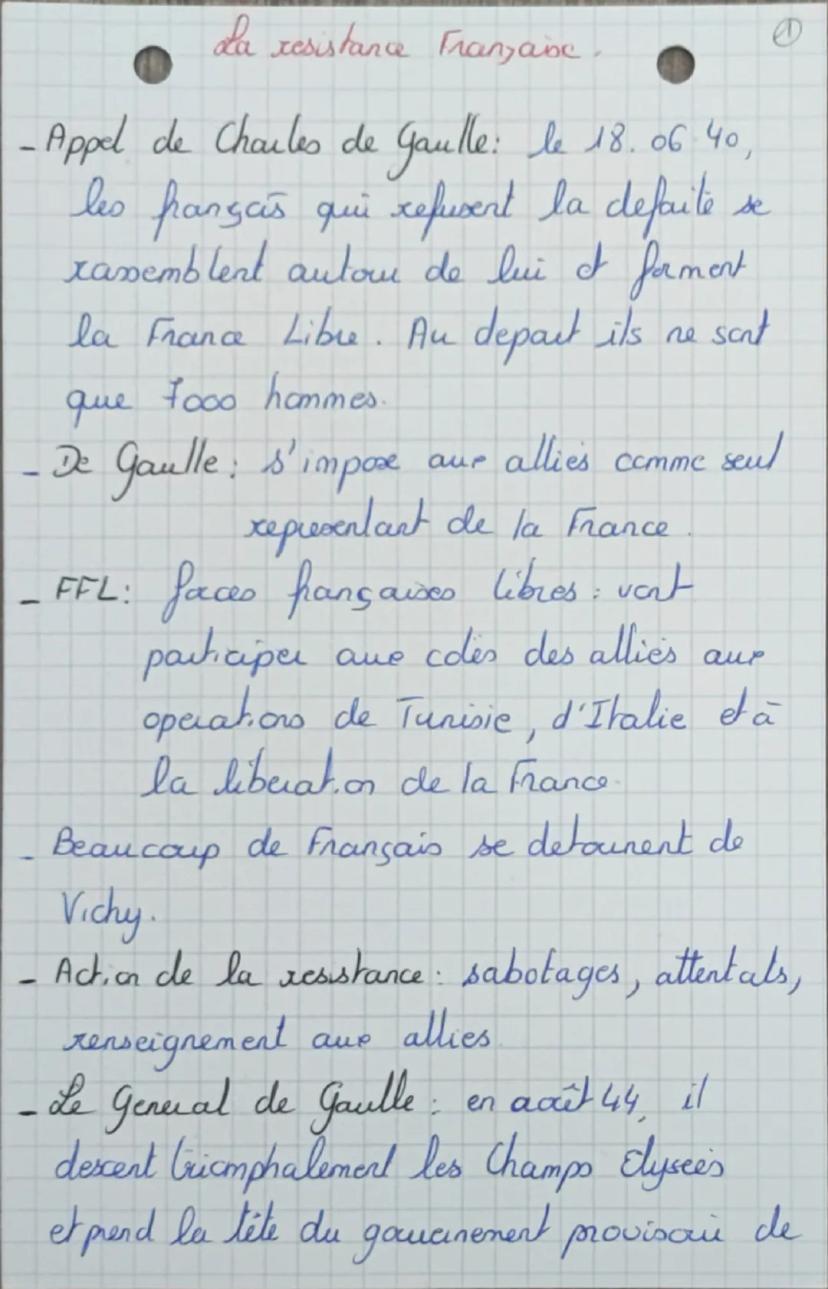 La resistance Française.
①
- Appel de Charles de Gaulle: le 18.06.40,
les français qui refusent la defaite se
rassemblent autour de lui et forment
la France Libre. Au depart ils ne sont
que 7000 hommes.
- De Gaulle: s'impose aux alliés comme seul
representant de la France.
- FFL: forces françaises libres: vont
participer aux cotés des alliés aux
operations de Tunisie, d'Italie et à
la liberation de la France.
- Beaucoup de Français se detournent de
Vichy.
- Action de la resistance: sabotages, attentats,
renseignement aux allies.
- Le General de Gaulle: en août 44, il
descent triomphalement les Champs Elysées
et prend la tête du gouvernement provisoir de